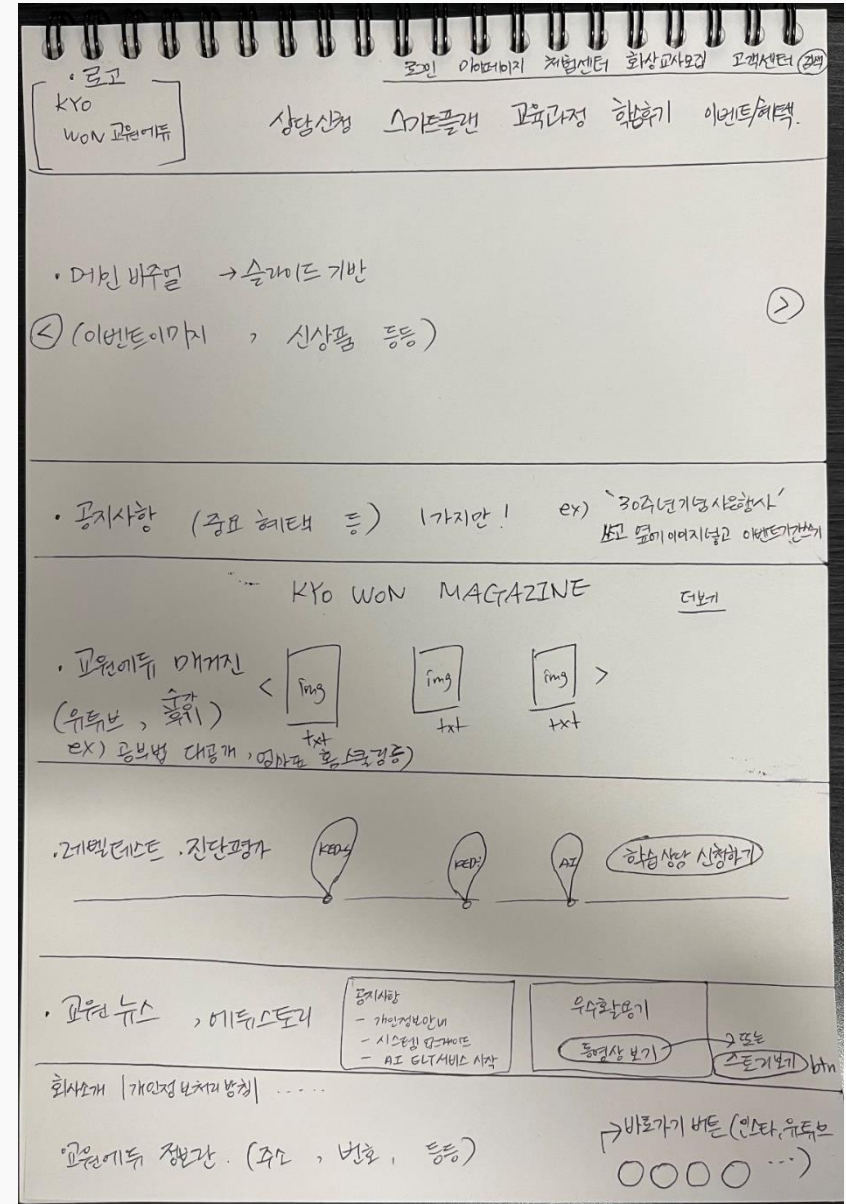 · 로고
KYO
WON 교원에듀
로그인 마이페이지 체험센터 화상교사모집 고객센터 검색
상담신청 스마트플랜 교육과정 학습후기 이벤트/혜택.
· 메인 비주얼 → 슬라이드 기반
< (이벤트이미지 , 신상품 등등) >
· 공지사항 (중요 혜택 등) 1가지만! ex) '30주년기념 사은행사'
쓰고 옆에 이미지넣고 이벤트기간쓰기
KYO WON MAGAZINE 더보기
· 교원에듀 매거진 < img img img >
(유튜브 , 수강후기)
txt txt txt
ex) 공부법 대공개, 엄마표 홈스쿨링등)
· 레벨테스트 · 진단평가 AI 학습상담 신청하기
· 교원 뉴스 , 에듀스토리
공지사항
- 개인정보안내
- 시스템 업그레이드
- AI 서비스 시작
우수활용기
동영상 보기 → 또는
스토리보기 btn
회사소개 | 개인정보처리방침 | .....
교원에듀 정보란. (주소 , 번호 , 등등)
→ 바로가기 버튼 (인스타, 유튜브
...)